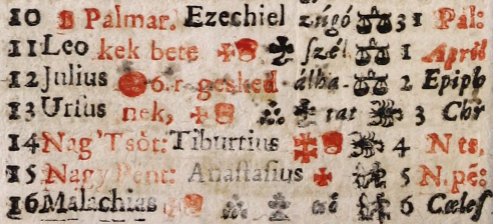 10 B Palmar. Ezechiel zúgó 31 Pal:
11 Leo kek bete szél. 1 April
12 Julius 6. r. gesked álha- 2 Epiph
13 Urius nek, tat 3 Chr
14 Nag'Tsòt: Tiburtius 4 N es,
15 Nagy Pent: Anastasius 5 N. pé:
16 Malachias 6 Cœles